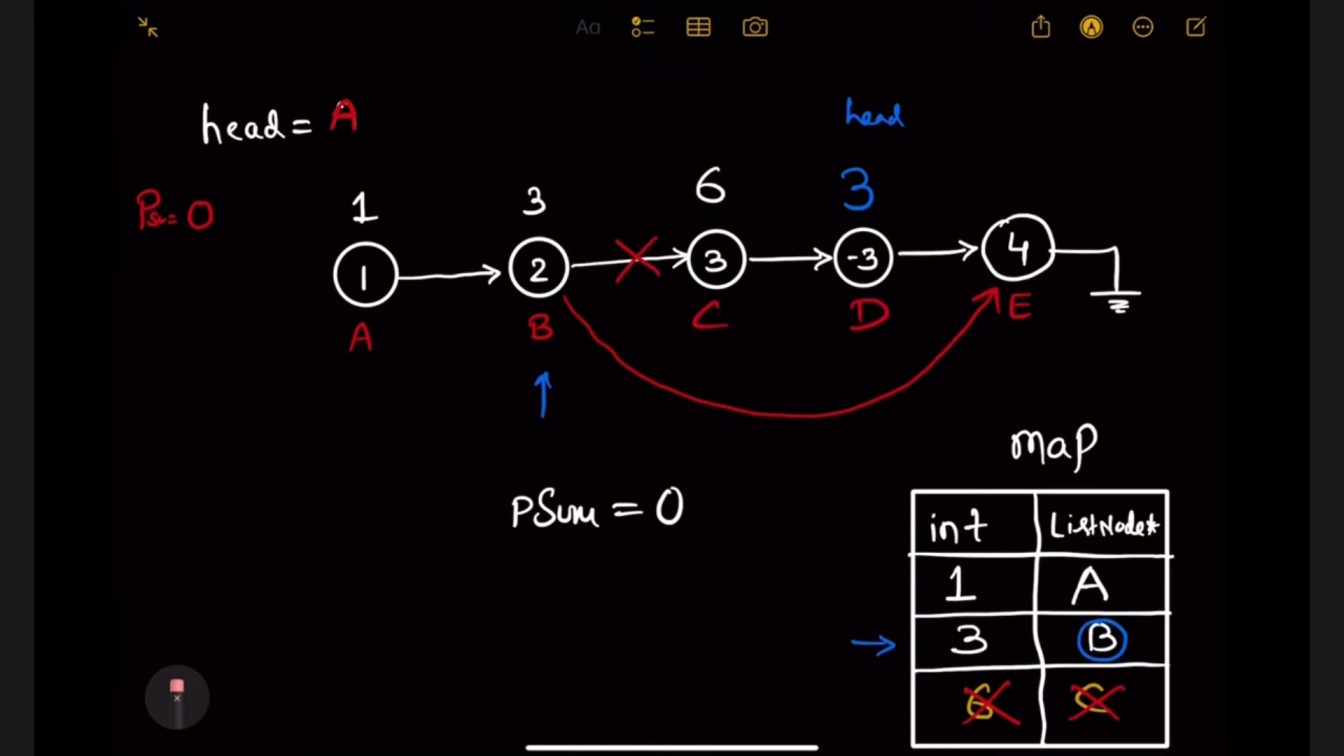 Aa
head = A
head
Psu = 0
1 3 6 3
1 2 3 -3 4
A B C D E
pSum = 0
map
int ListNode*
1 A
3 B
6 C